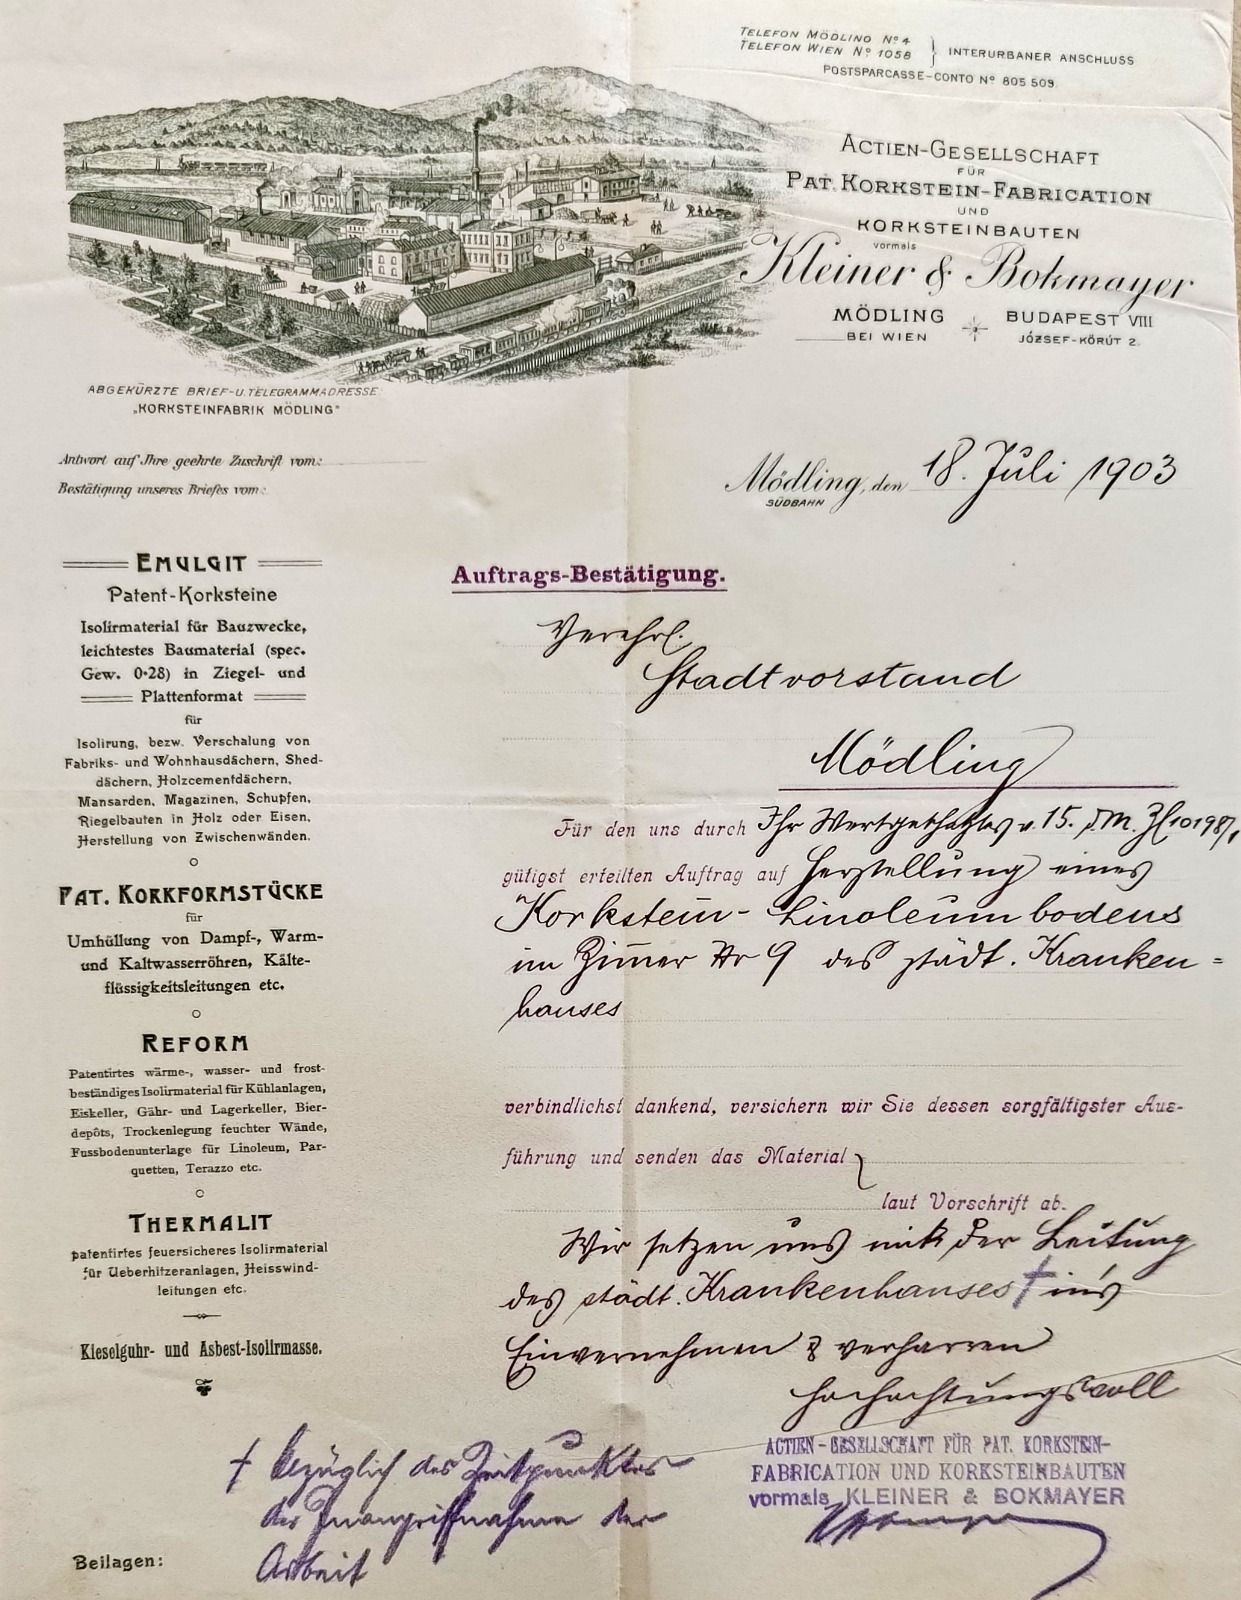 TELEFON MÖDLING Nº 4
TELEFON WIEN Nº 1058
INTERURBANER ANSCHLUSS
POSTSPARCASSE-CONTO Nº 805 509
ACTIEN-GESELLSCHAFT
FÜR
PAT. KORKSTEIN-FABRICATION
UND
KORKSTEINBAUTEN
vormals
Kleiner & Bokmayer
MÖDLING
BEI WIEN
BUDAPEST VIII
JÓZSEF-KÖRÚT 2.
ABGEKÜRZTE BRIEF-U. TELEGRAMMADRESSE:
„KORKSTEINFABRIK MÖDLING"
Antwort auf Ihre geehrte Zuschrift vom:
Bestätigung unseres Briefes vom:
Mödling, den 18. Juli 1903
SÜDBAHN
EMULGIT
Patent-Korksteine
Isolirmaterial für Bauzwecke,
leichtestes Baumaterial (spec.
Gew. 0·28) in Ziegel- und
Plattenformat
für
Isolirung, bezw. Verschalung von
Fabriks- und Wohnhausdächern, Shed-
dächern, Holzcementdächern,
Mansarden, Magazinen, Schupfen,
Riegelbauten in Holz oder Eisen,
Herstellung von Zwischenwänden.
PAT. KORKFORMSTÜCKE
für
Umhüllung von Dampf-, Warm-
und Kaltwasserröhren, Kälte-
flüssigkeitsleitungen etc.
REFORM
Patentirtes wärme-, wasser- und frost-
beständiges Isolirmaterial für Kühlanlagen,
Eiskeller, Gähr- und Lagerkeller, Bier-
depôts, Trockenlegung feuchter Wände,
Fussbodenunterlage für Linoleum, Par-
quetten, Terazzo etc.
THERMALIT
patentirtes feuersicheres Isolirmaterial
für Ueberhitzeranlagen, Heisswind-
leitungen etc.
Kieselguhr- und Asbest-Isolirmasse.
Auftrags-Bestätigung.
Verehrl.
Stadtvorstand
Mödling
Für den uns durch Ihr Wertgeschätztes v. 15. d. M. Zl 10198/1
gütigst erteilten Auftrag auf Herstellung eines
Korkstein-Linoleumbodens
im Zimmer Nr 9 des städt. Kranken=
hauses
verbindlichst dankend, versichern wir Sie dessen sorgfältigster Aus-
führung und senden das Material
laut Vorschrift ab.
Wir setzen uns mit der Leitung
des städt. Krankenhauses † in's
Einvernehmen & verharren
hochachtungsvoll
ACTIEN-GESELLSCHAFT FÜR PAT. KORKSTEIN-
FABRICATION UND KORKSTEINBAUTEN
vormals KLEINER & BOKMAYER
† bezüglich des Zeitpunktes
der Inangriffnahme der
Arbeit
Beilagen: